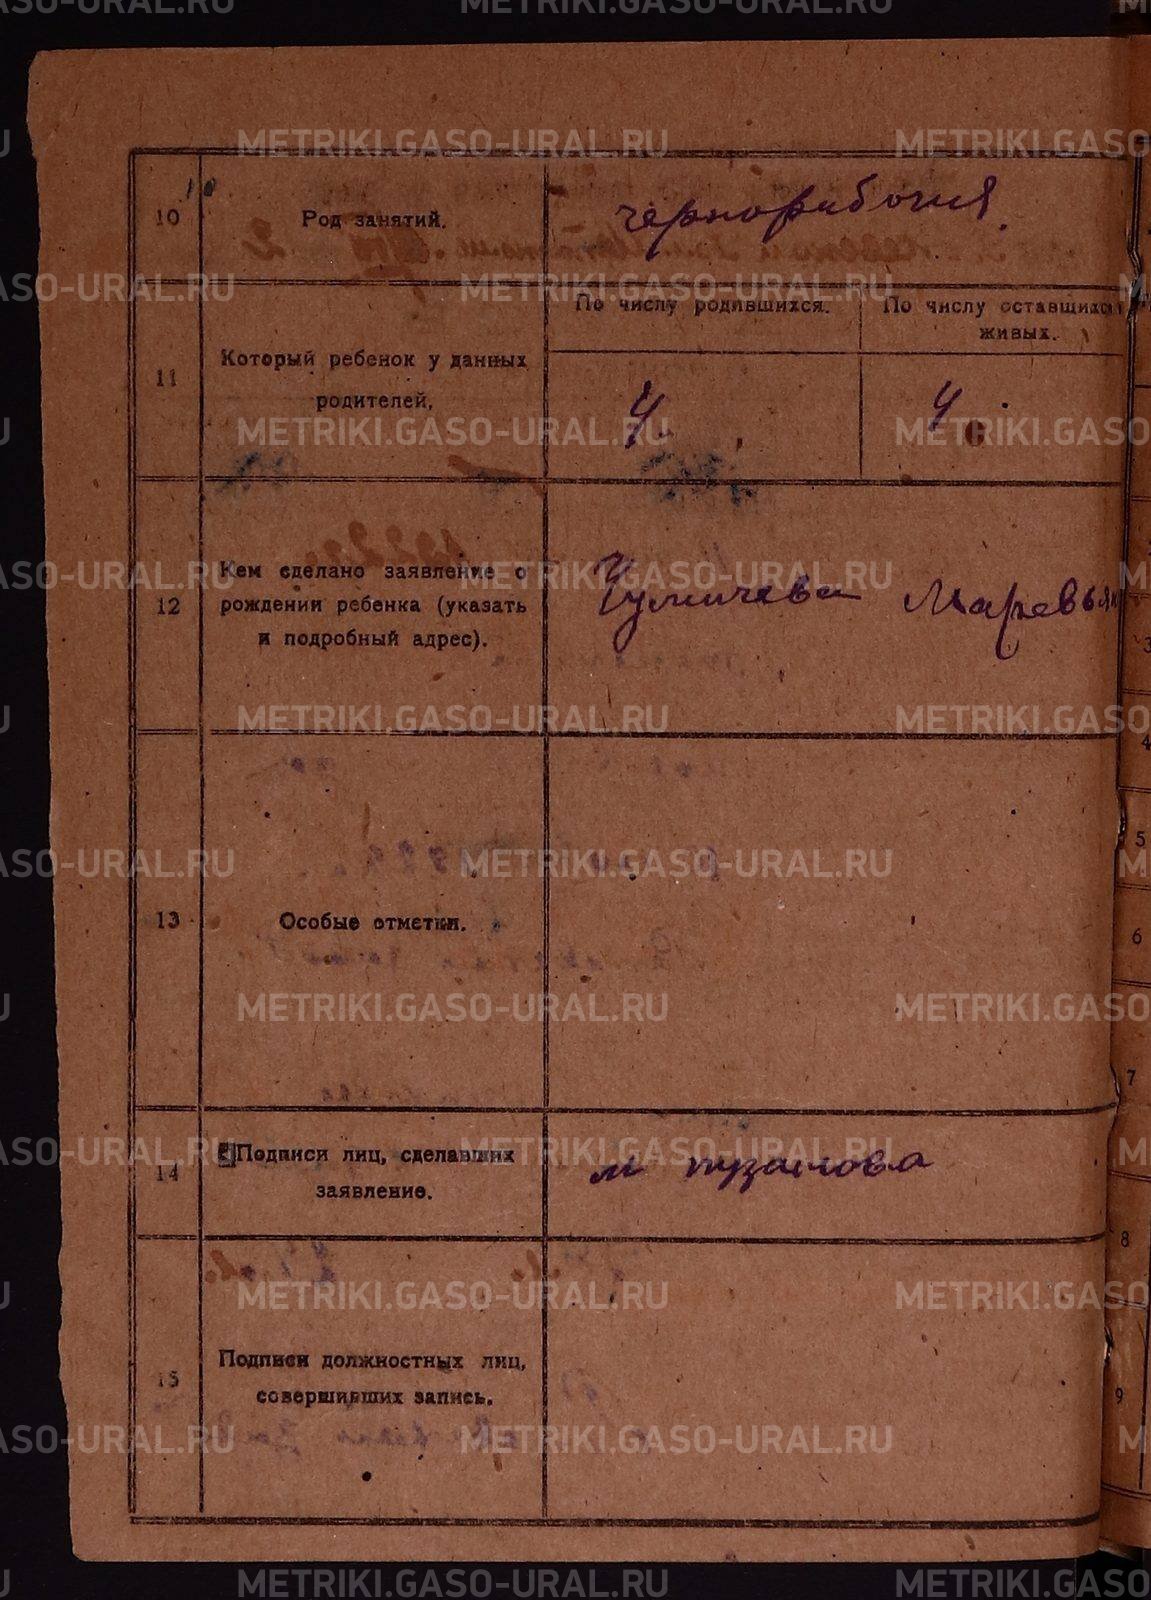 METRIKI.GASO-URAL.RU
10 Род занятий. чернорабочия
По числу родившихся. По числу оставшихся живых.
11 Который ребенок у данных
родителей,
4 4
12 Кем сделано заявление о
рождении ребенка (указать
и подробный адрес).
13 Особые отметки.
14 Подписи лиц, сделавших
заявление.
м пузанова
15 Подписи должностных лиц,
совершивших запись.
3
4
5
6
7
8
9